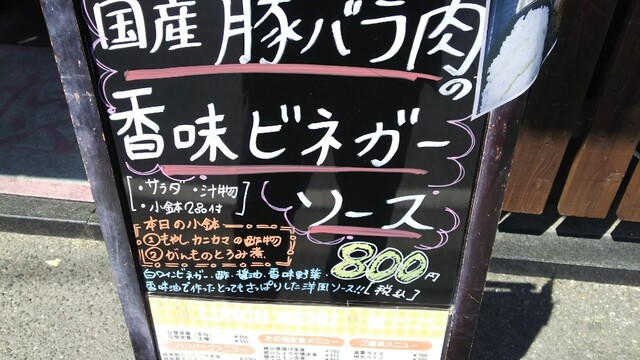 国産 豚バラ肉の
香味ビネガー
ソース
・サラダ ・汁物
・小鉢2品付
本日の小鉢
①もやしカニカマの酢物
②がんものとろみ煮
800円
[税込]
白ワインビネガー、酢、醤油、香味野菜
香味油で作ったとってもさっぱりした洋風ソース!!
LUNCH MENU
その他定食メニュー
ご飯系メニュー